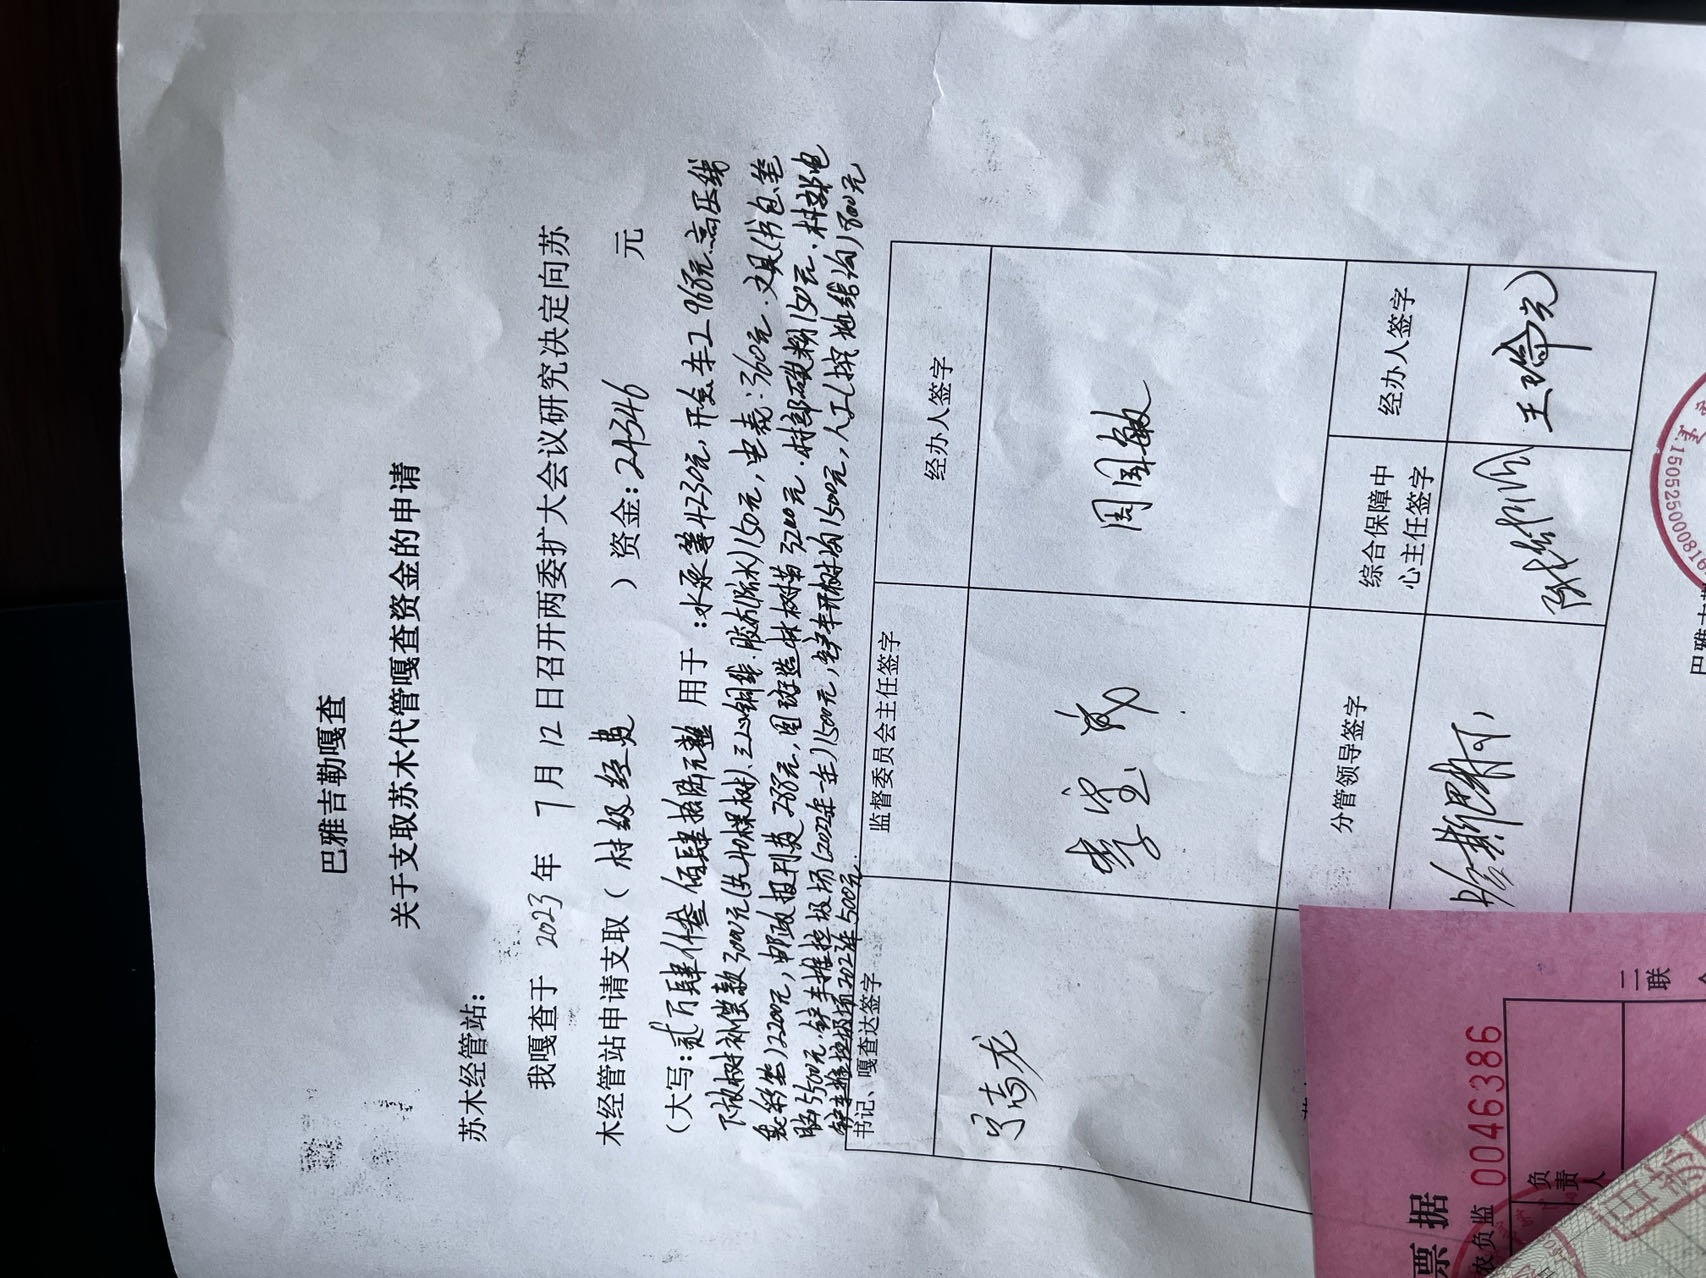 巴雅吉勒嘎查
关于支取苏木代管嘎查资金的申请
苏木经管站：
我嘎查于 2023 年 7 月 12 日召开两委扩大会议研究决定向苏
木经管站申请支取（ 村级经费 ）资金：24346 元
（大写：贰万肆仟叁佰肆拾陆元整 用于：水泵等4230元，开会车工968元.高压线
下放树补偿款3000元(共40棵树)、三心铜线.胶布(防水)150元，电表：360元.文具(书包.笔
彩笔)2200元，邮政报刊类288元，国 造林树苗3200元.村部硒鼓粉150元.村部电
脑5500元.铲车推垃圾场(2022年一年)1500元，铲车开树沟1500元，人工挖地线沟800元
铲车推垃圾场2021年500元
书记、嘎查达签字 监督委员会主任签字 经办人签字
宁志龙 李宝成 周国敏
分管领导签字 综合保障中心主任签字 经办人签字
王 
1505250008
巴雅
票据
农负监 0046386
负责人
二联